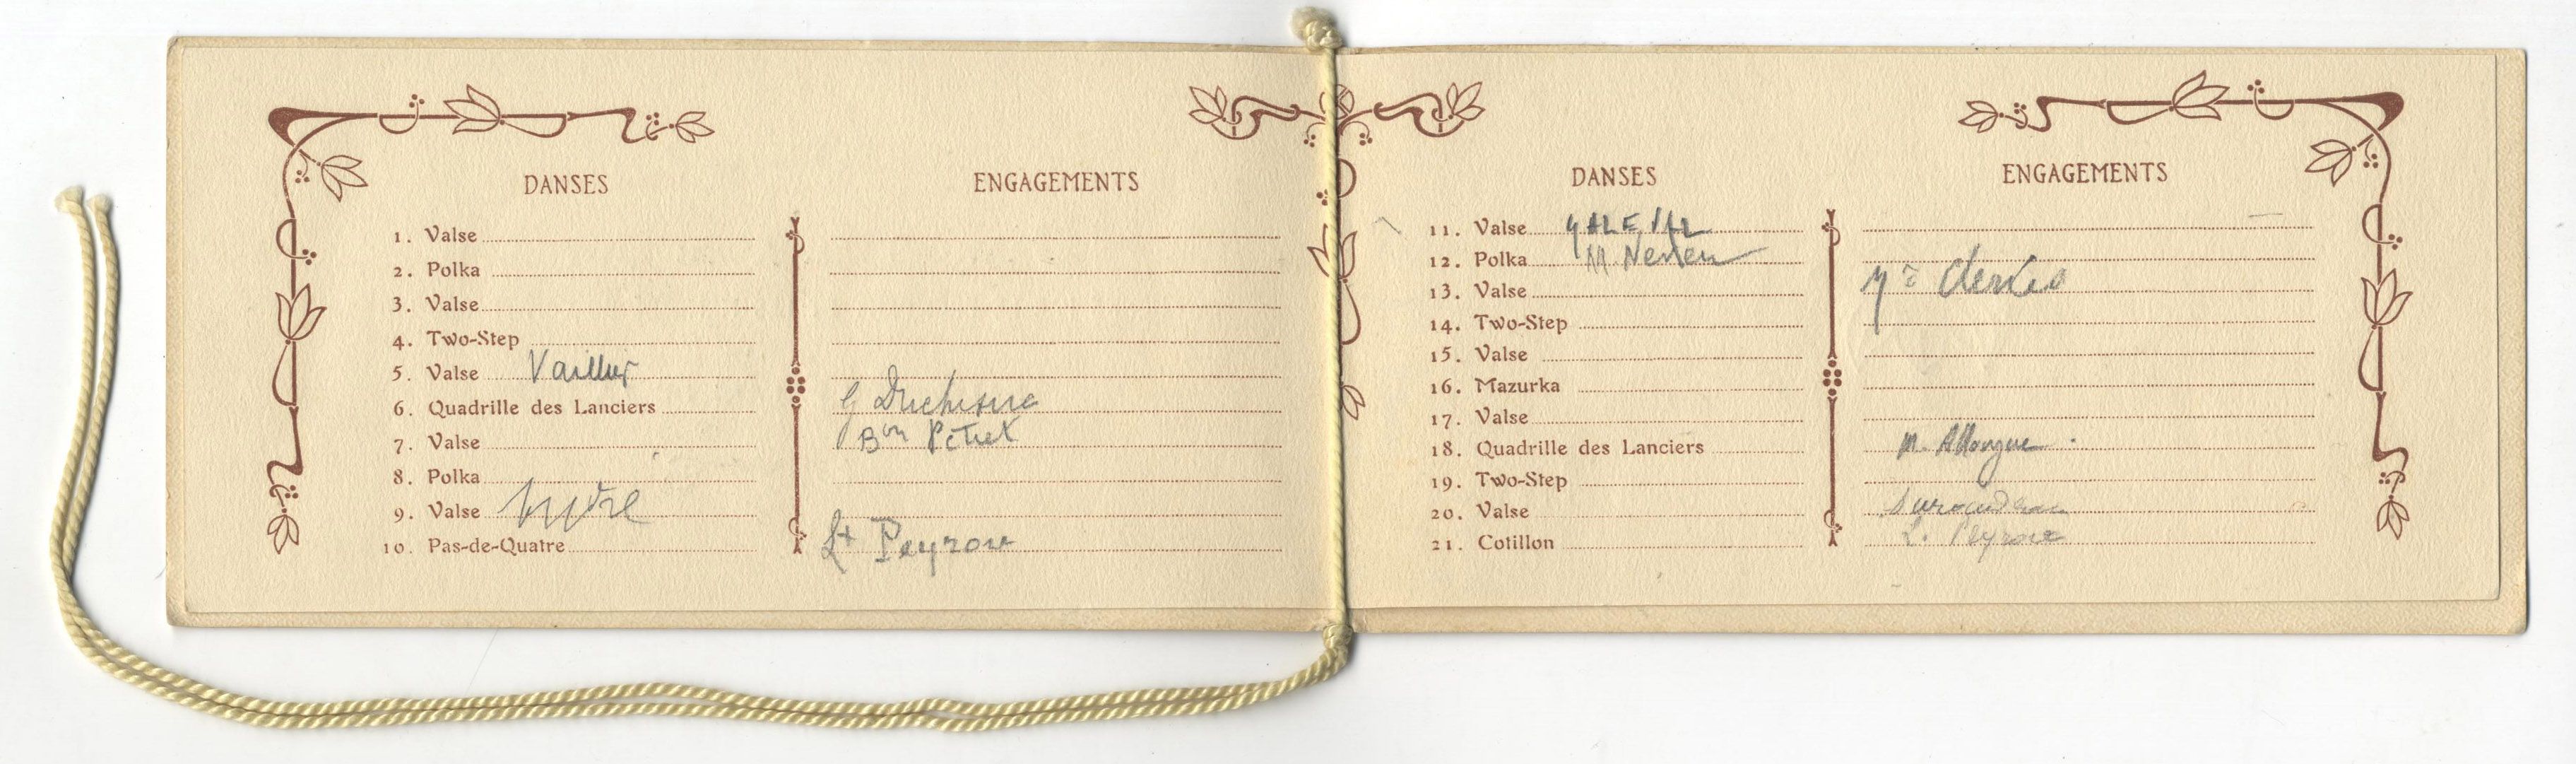 DANSES
ENGAGEMENTS
1. Valse
2. Polka
3. Valse
4. Two-Step
5. Valse
6. Quadrille des Lanciers
G Duchesne
7. Valse
Bon Pétiet
8. Polka
9. Valse
10. Pas-de-Quatre
Lt Peyrou
DANSES
ENGAGEMENTS
11. Valse
12. Polka
13. Valse
14. Two-Step
15. Valse
16. Mazurka
17. Valse
18. Quadrille des Lanciers
M. Allongue
19. Two-Step
20. Valse
21. Cotillon